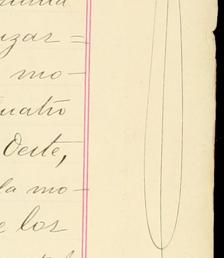 uzar=
mo-
uatro
Oeste,
la mo-
e los